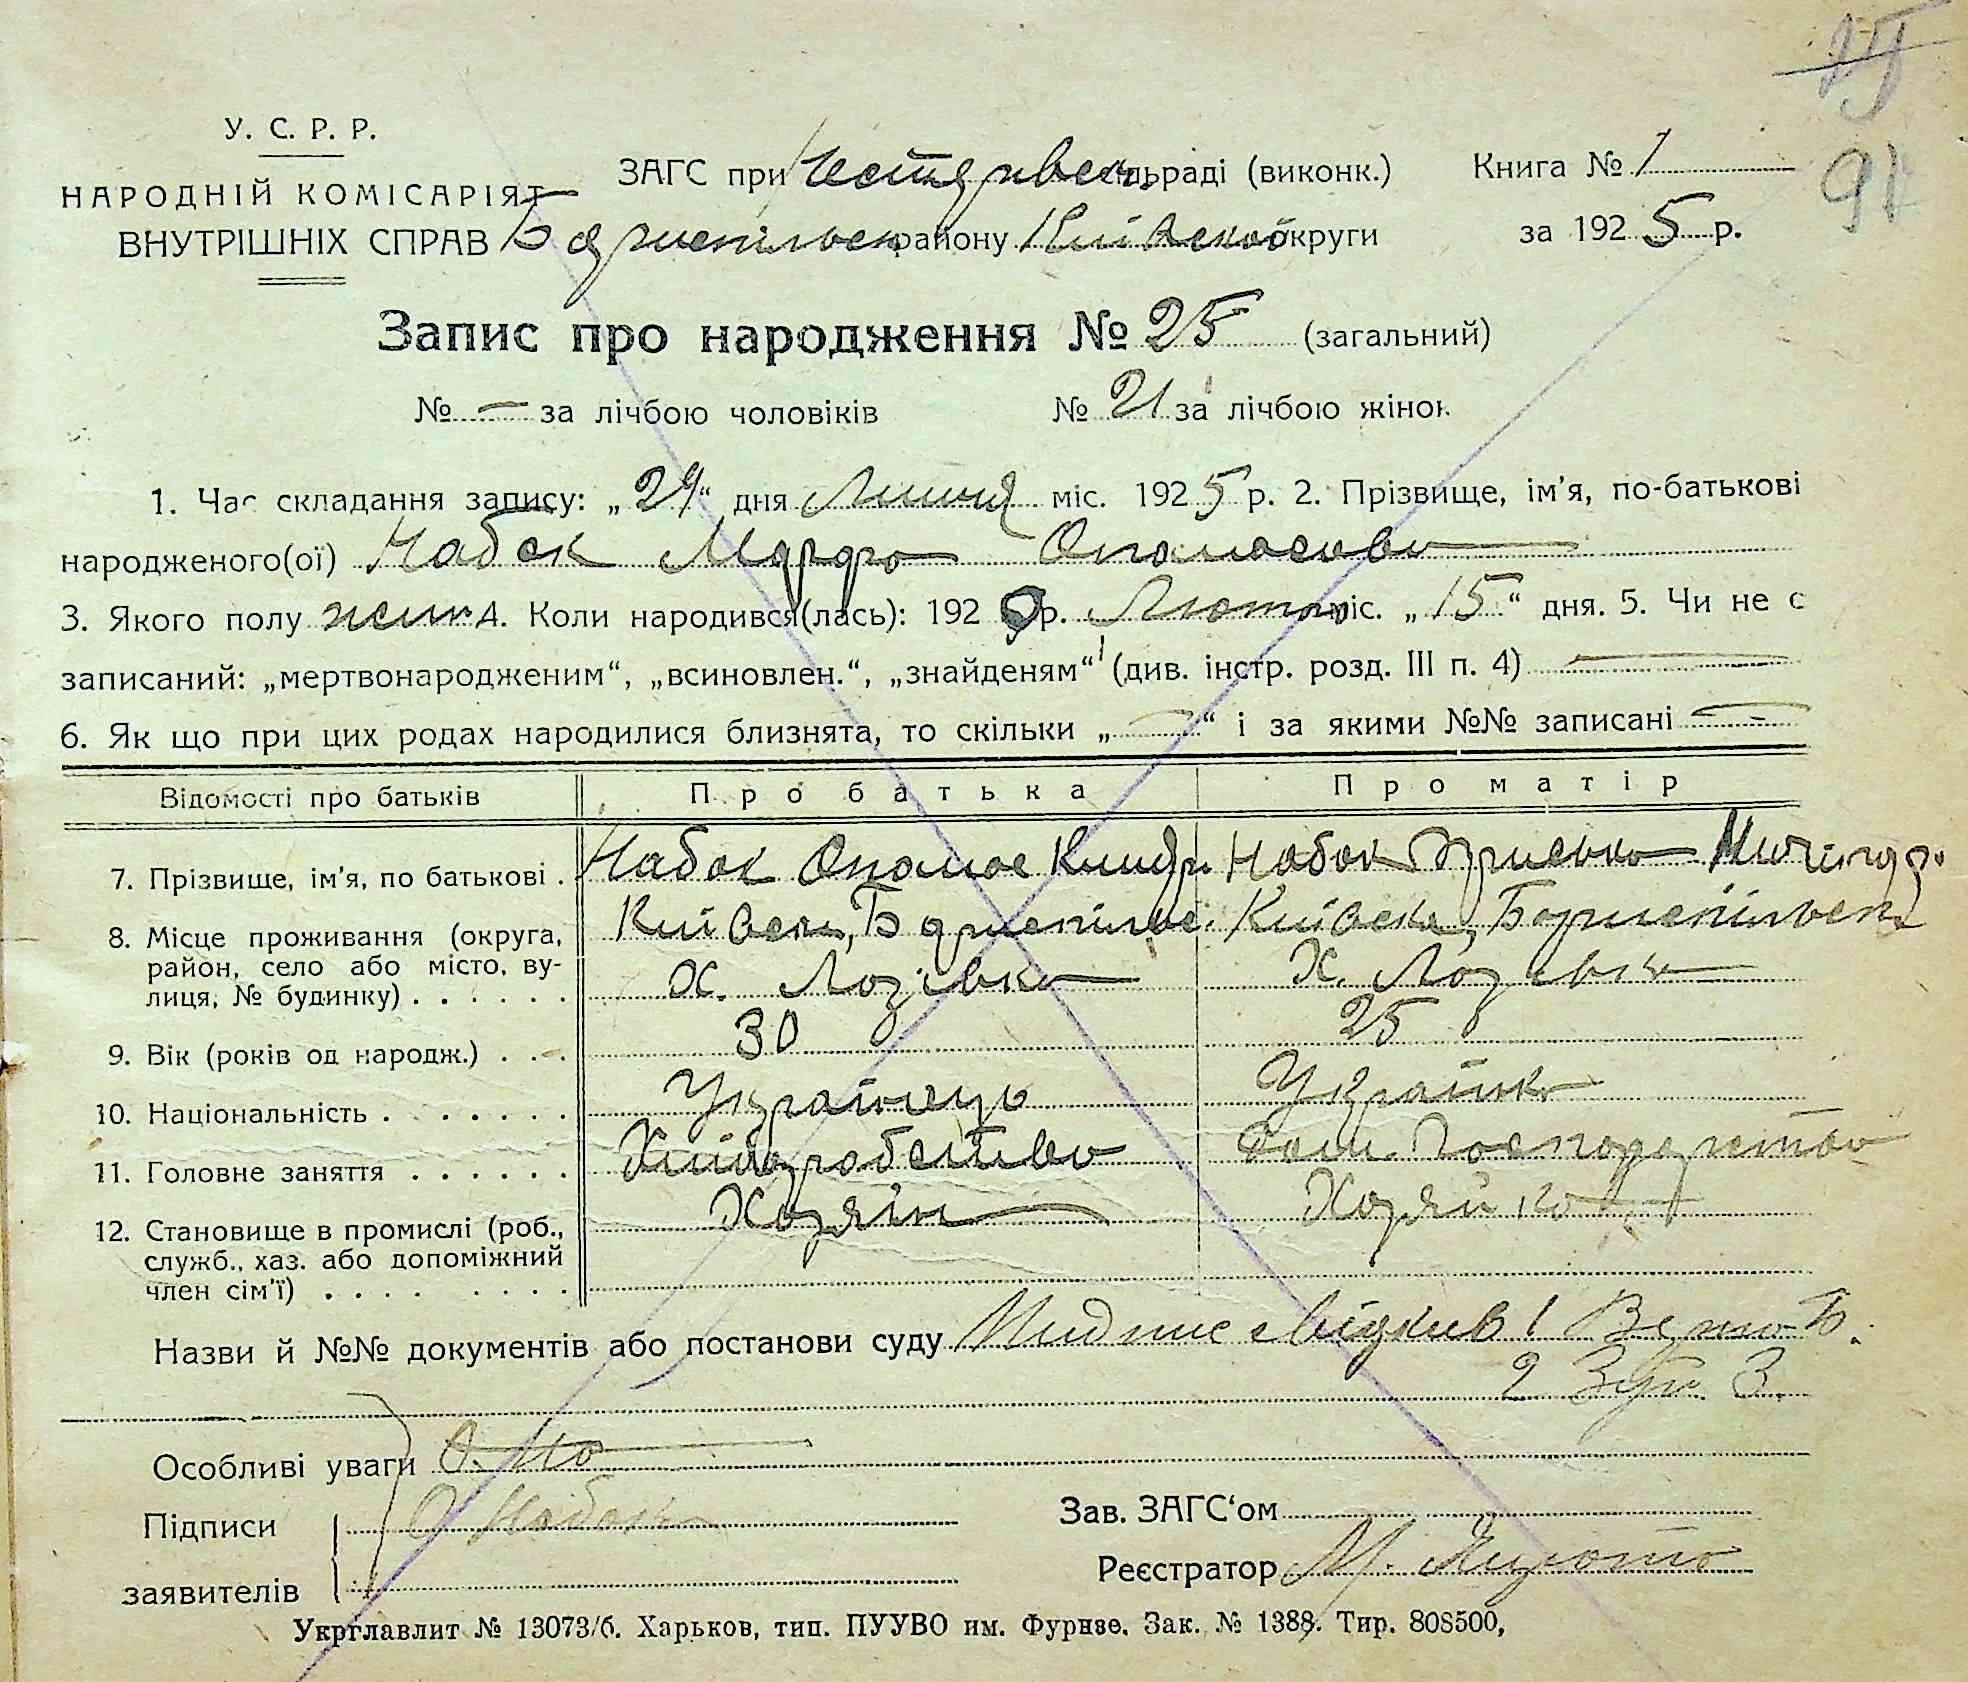 91
У. С. Р. Р.
НАРОДНІЙ КОМІСАРІЯТ
ВНУТРІШНІХ СПРАВ
ЗАГС при сільраді (виконк.) Книга № 1
Бориспільськ. району Київської округи за 1925 р.
Запис про народження № 25 (загальний)
№ — за лічбою чоловіків № 21 за лічбою жінок
1. Час складання запису: „29“ дня Липня міс. 1925 р. 2. Прізвище, ім’я, по-батькові
народженого(ої) Набок Марфа Опанасова
3. Якого полу жін. 4. Коли народився(лась): 192 р. Лютого міс. „15“ дня. 5. Чи не є
записаний: „мертвонародженим“, „всиновлен.“, „знайденям“ (див. інстр. розд. III п. 4) —
6. Як що при цих родах народилися близнята, то скільки „—“ і за якими №№ записані —
Відомості про батьків Про батька Про матір
7. Прізвище, ім’я, по батькові . Набок Опанас Набок Приська
8. Місце проживання (округа, район, село або місто, вулиця, № будинку) . . . . . . Київськ, Бориспільс. Київська, Бориспільськ
Х. Лозівка Х. Лозівка
9. Вік (років од народж.) . . . 30 25
10. Національність . . . . . . . Українець Українка
11. Головне заняття . . . . . . Хліборобство Дом. Господарство
12. Становище в промислі (роб., служб., хаз. або допоміжний член сім’ї) . . . . . . . . Хозяїн Хозяйка
Назви й №№ документів або постанови суду свідків 1
2 З.
Особливі уваги
Підписи О Набок
заявителів
Зав. ЗАГС‘ом
Реєстратор М.
Укрглавлит № 13073/б. Харьков, тип. ПУУВО им. Фурнзе. Зак. № 1388. Тир. 808500,